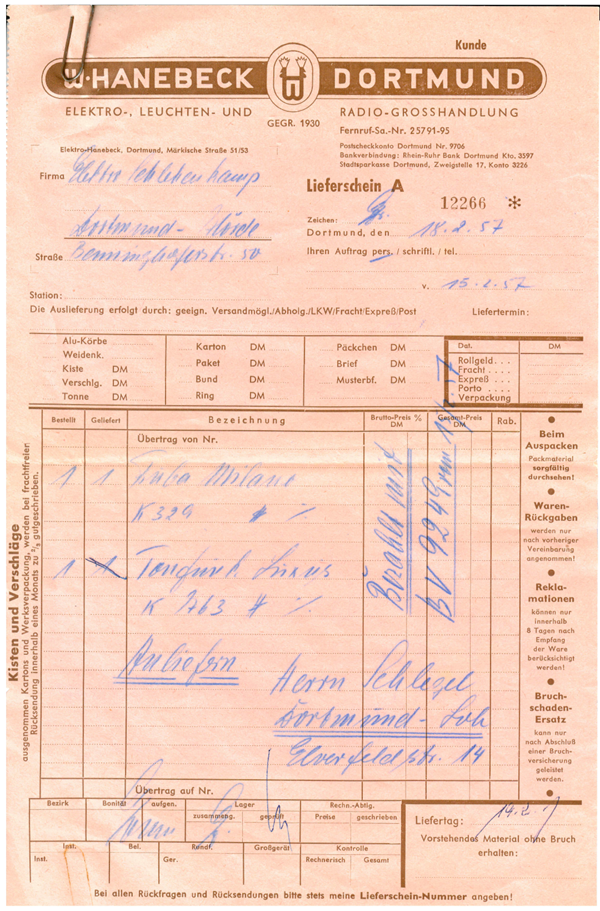 Kunde
W·HANEBECK HB DORTMUND
ELEKTRO-, LEUCHTEN- UND GEGR. 1930 RADIO-GROSSHANDLUNG
Fernruf-Sa.-Nr. 25791-95
Elektro-Hanebeck, Dortmund, Märkische Straße 51/53
Postscheckkonto Dortmund Nr. 9706
Bankverbindung: Rhein-Ruhr Bank Dortmund Kto. 3597
Stadtsparkasse Dortmund, Zweigstelle 17, Konto 3226
Firma Elektro
Lieferschein A 12266 *
Zeichen:
Dortmund-
Dortmund, den 18.2.57
Straße Benninghoferstr. 50
Ihren Auftrag pers./schriftl./tel.
v. 15.2.57
Station:
Die Auslieferung erfolgt durch: geeign. Versandmögl./Abholg./LKW/Fracht/Expreß/Post Liefertermin:
Alu-Körbe
Weidenk.
Kiste DM
Verschlg. DM
Tonne DM
Karton DM
Paket DM
Bund DM
Ring DM
Päckchen DM
Brief DM
Musterbf. DM
Dat. DM
Rollgeld . . .
Fracht . . . .
Expreß . . .
Porto . . . .
Verpackung
Bestellt Geliefert Bezeichnung Brutto-Preis % DM Gesamt-Preis DM Rab.
Übertrag von Nr.
1 1 Kuba Milano
K 329 # %
1 1 Tonfunk Luxus
K 763 # %
Anliefern
Herrn Schlegel
Dortmund-Loh
Elverfeldstr. 14
Bezahlt mit
BV 9249 vom
Übertrag auf Nr.
Kisten und Verschläge
ausgenommen Kartons und Werksverpackung, werden bei frachtfreien
Rücksendung innerhalb eines Monats zu ²/₃ gutgeschrieben.
Beim
Auspacken
Packmaterial
sorgfältig
durchsehen!
Waren-
Rückgaben
werden nur
nach vorheriger
Vereinbarung
angenommen!
Rekla-
mationen
können nur
innerhalb
8 Tagen nach
Empfang
der Ware
berücksichtigt
werden!
Bruch-
schaden-
Ersatz
kann nur
nach Abschluß
einer Bruch-
versicherung
geleistet
werden.
Bezirk Bonität aufgen. Lager Rechn.-Abtlg.
zusammeng. geprüft Preise geschrieben
Inst. Bel. Rundf. Großgerät Kontrolle
Inst. Ger. Rechnerisch Gesamt
Liefertag: 19.2.
Vorstehendes Material ohne Bruch
erhalten:
Bei allen Rückfragen und Rücksendungen bitte stets meine Lieferschein-Nummer angeben!